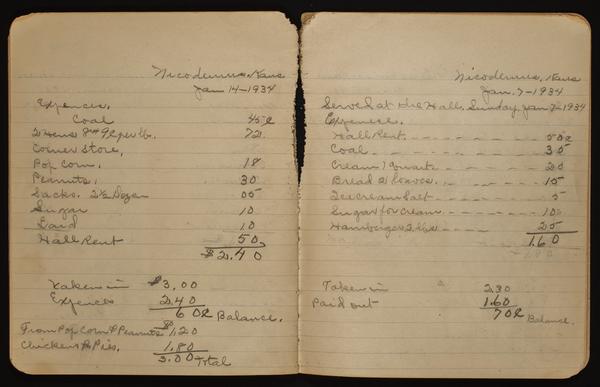 Nicodemus, Kans
Jan 14-1934
Expences.
Coal 45¢
2 Hens 8## 9¢ per lb. 72
Corner Store,
Pop Corn. 18
Peanuts. 30
Sacks. 2½ Dozen 05
Sugar 10
Lard 10
Hall Rent 50
$2.40
Taken in $3.00
Expences 2.40
60¢ Balance.
From Pop Corn & Peanuts $1.20
Chickens & Pies. 1.80
3.00 Total
Nicodemus, Kans
Jan. 7-1934
Served at the Hall, Sunday, Jan 7-1934
Expence.
Hall Rent. 50¢
Coal 35
Cream 1 Quart 20
Bread 2 loaves. 15
Icecream Salt 5
Sugar for cream 10
Hamberger 2 lbs 25
1.60
Taken in 2.30
Paid out 1.60
70¢ Balance.